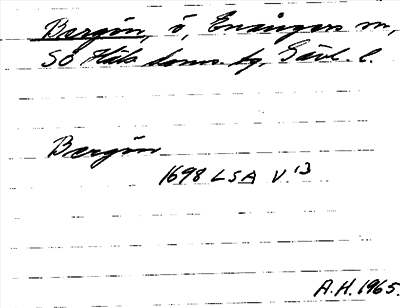 Bergön, ö, Enångers sn,
SÖ Häls doms. tg, Gävl. l.
Bergön
1698 LSA V 13
A.H. 1965.